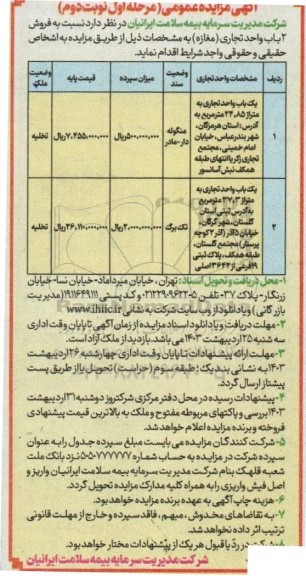 آگهی مزایده عمومی (مرحله اول نوبت دوم)
شرکت مدیریت سرمایه بیمه سلامت ایرانیان در نظر دارد نسبت به فروش
۲ باب واحد تجاری (مغازه) به مشخصات ذیل از طریق مزایده به اشخاص
حقیقی و حقوقی واجد شرایط اقدام نماید.
ردیف مشخصات واحد تجاری وضعیت سند میزان سپرده قیمت پایه وضعیت ملک
۱
یک باب واحد تجاری به
متراژ ۲۴٫۸۵ مترمربع به
آدرس: استان هرمزگان،
شهر بندرعباس، خیابان
امام خمینی، مجتمع
تجاری زکریا انتهای طبقه
همکف نبش آسانسور
منگوله دار-مادر
۵۰۰٬۰۰۰٬۰۰۰ ریال
۷٬۴۵۵٬۰۰۰٬۰۰۰ ریال
تخلیه
۲
یک باب واحد تجاری به
متراژ ۳۷٫۳ مترمربع
به آدرس ثبتی استان
گلستان، شهر گرگان،
خیابان دفتر (آذر ۲ کوچه
پرستار) مجتمع گلستان،
طبقه همکف، پلاک ثبتی
۱۹ فرعی از ۱۳۶۴۳ اصلی
تک برگ
۲٬۰۰۰٬۰۰۰٬۰۰۰ ریال
۲۶٬۱۱۰٬۰۰۰٬۰۰۰ ریال
تخلیه
۱-محل دریافت و تحویل اسناد: تهران، خیابان میرداماد- خیابان نسا- خیابان
زرنگار- پلاک ۳۷- تلفن ۵-۲۲۹۰۹۶۲۲ و کد پستی ۱۹۱۱۶۴۹۱۱۱ (مدیریت
بازرگانی) و یا دانلود از وب سایت شرکت به نشانی www.ihiic.ir
۲- مهلت دریافت و یا دانلود اسناد مزایده از زمان آگهی تا پایان وقت اداری
سه شنبه ۲۵ اردیبهشت ۱۴۰۳ می باشد. بازدید از ملک آزاد است.
۳-مهلت ارائه پیشنهادات تا پایان وقت اداری- چهارشنبه ۲۶ اردیبهشت
۱۴۰۳ به نشانی بند یک؛ طبقه سوم (حراست) تحویل یا از طریق پست
پیشتاز ارسال گردد.
۴- پیشنهادات رسیده در محل دفتر مرکزی شرکت روز دوشنبه ۳۱ اردیبهشت
۱۴۰۳ بررسی و پاکتهای مربوطه مفتوح و ملک به بالاترین قیمت پیشنهادی
فروخته و برنده مزایده اعلام خواهد شد.
۵- شرکت کنندگان مزایده می بایست مبلغ سپرده جدول را به عنوان
سپرده شرکت در مزایده به حساب شماره ۵۰۵۰۷۷۷۷۷۷ نزد بانک ملت
شعبه قلهک بنام شرکت مدیریت سرمایه بیمه سلامت ایرانیان واریز و
اصل فیش واریزی را به همراه کلیه مدارک مزایده تحویل گردد.
۶- هزینه چاپ آگهی به عهده برنده مزایده خواهد بود.
۷- به تقاضاهای مخدوش، مبهم، فاقد سپرده و خارج از مهلت قانونی
ترتیب اثر داده نخواهد شد.
۸- شرکت در رد یا قبول هر یک از پیشنهادات مختار خواهد بود.
شرکت مدیریت سرمایه بیمه سلامت ایرانیان